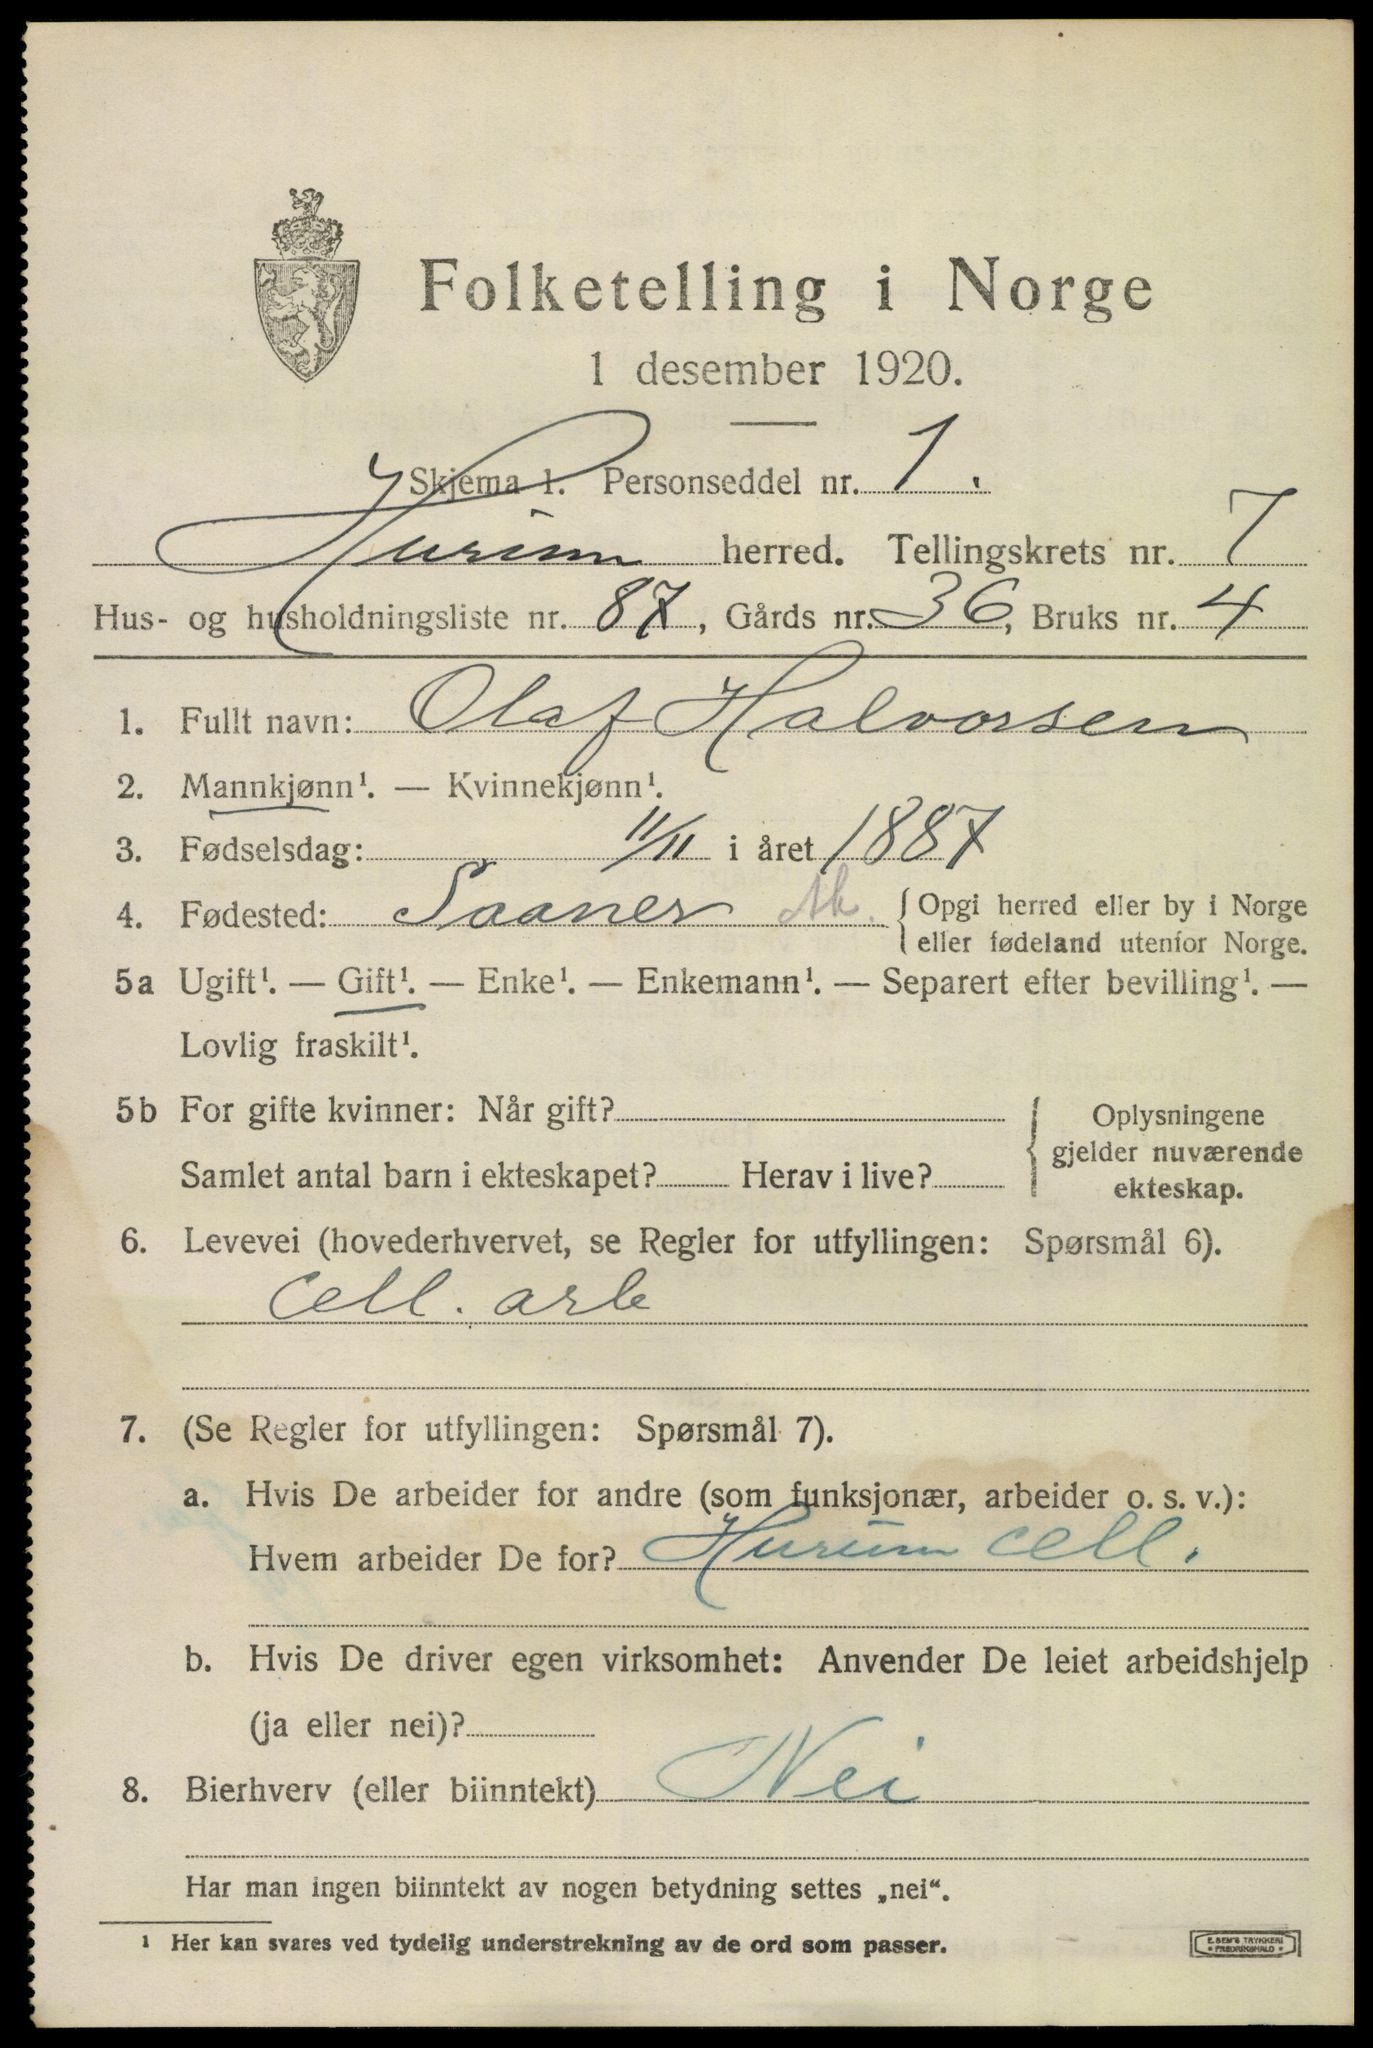 Folketelling i Norge
1 desember 1920.
Skjema 1. Personseddel nr. 1.
Hurum herred. Tellingskrets nr. 7
Hus- og husholdningsliste nr. 87, Gårds nr. 36, Bruks nr. 4
1. Fullt navn: Olaf Halvorsen
2. Mannkjønn¹. — Kvinnekjønn¹.
3. Fødselsdag: 11/11 i året 1887
4. Fødested: Saaner Ak. { Opgi herred eller by i Norge
eller fødeland utenfor Norge.
5a Ugift¹. — Gift¹. — Enke¹. — Enkemann¹. — Separert efter bevilling¹. —
Lovlig fraskilt¹.
5b For gifte kvinner: Når gift?
Samlet antal barn i ekteskapet? Herav i live?
{ Oplysningene
gjelder nuværende
ekteskap.
6. Levevei (hovederhvervet, se Regler for utfyllingen: Spørsmål 6).
Cell. arb
7. (Se Regler for utfyllingen: Spørsmål 7).
a. Hvis De arbeider for andre (som funksjonær, arbeider o. s. v.):
Hvem arbeider De for? Hurum Cell.
b. Hvis De driver egen virksomhet: Anvender De leiet arbeidshjelp
(ja eller nei)?
8. Bierhverv (eller biinntekt) Nei
Har man ingen biinntekt av nogen betydning settes „nei“.
¹ Her kan svares ved tydelig understrekning av de ord som passer.
E. SEM'S TRYKKERI
FREDRIKSHALD